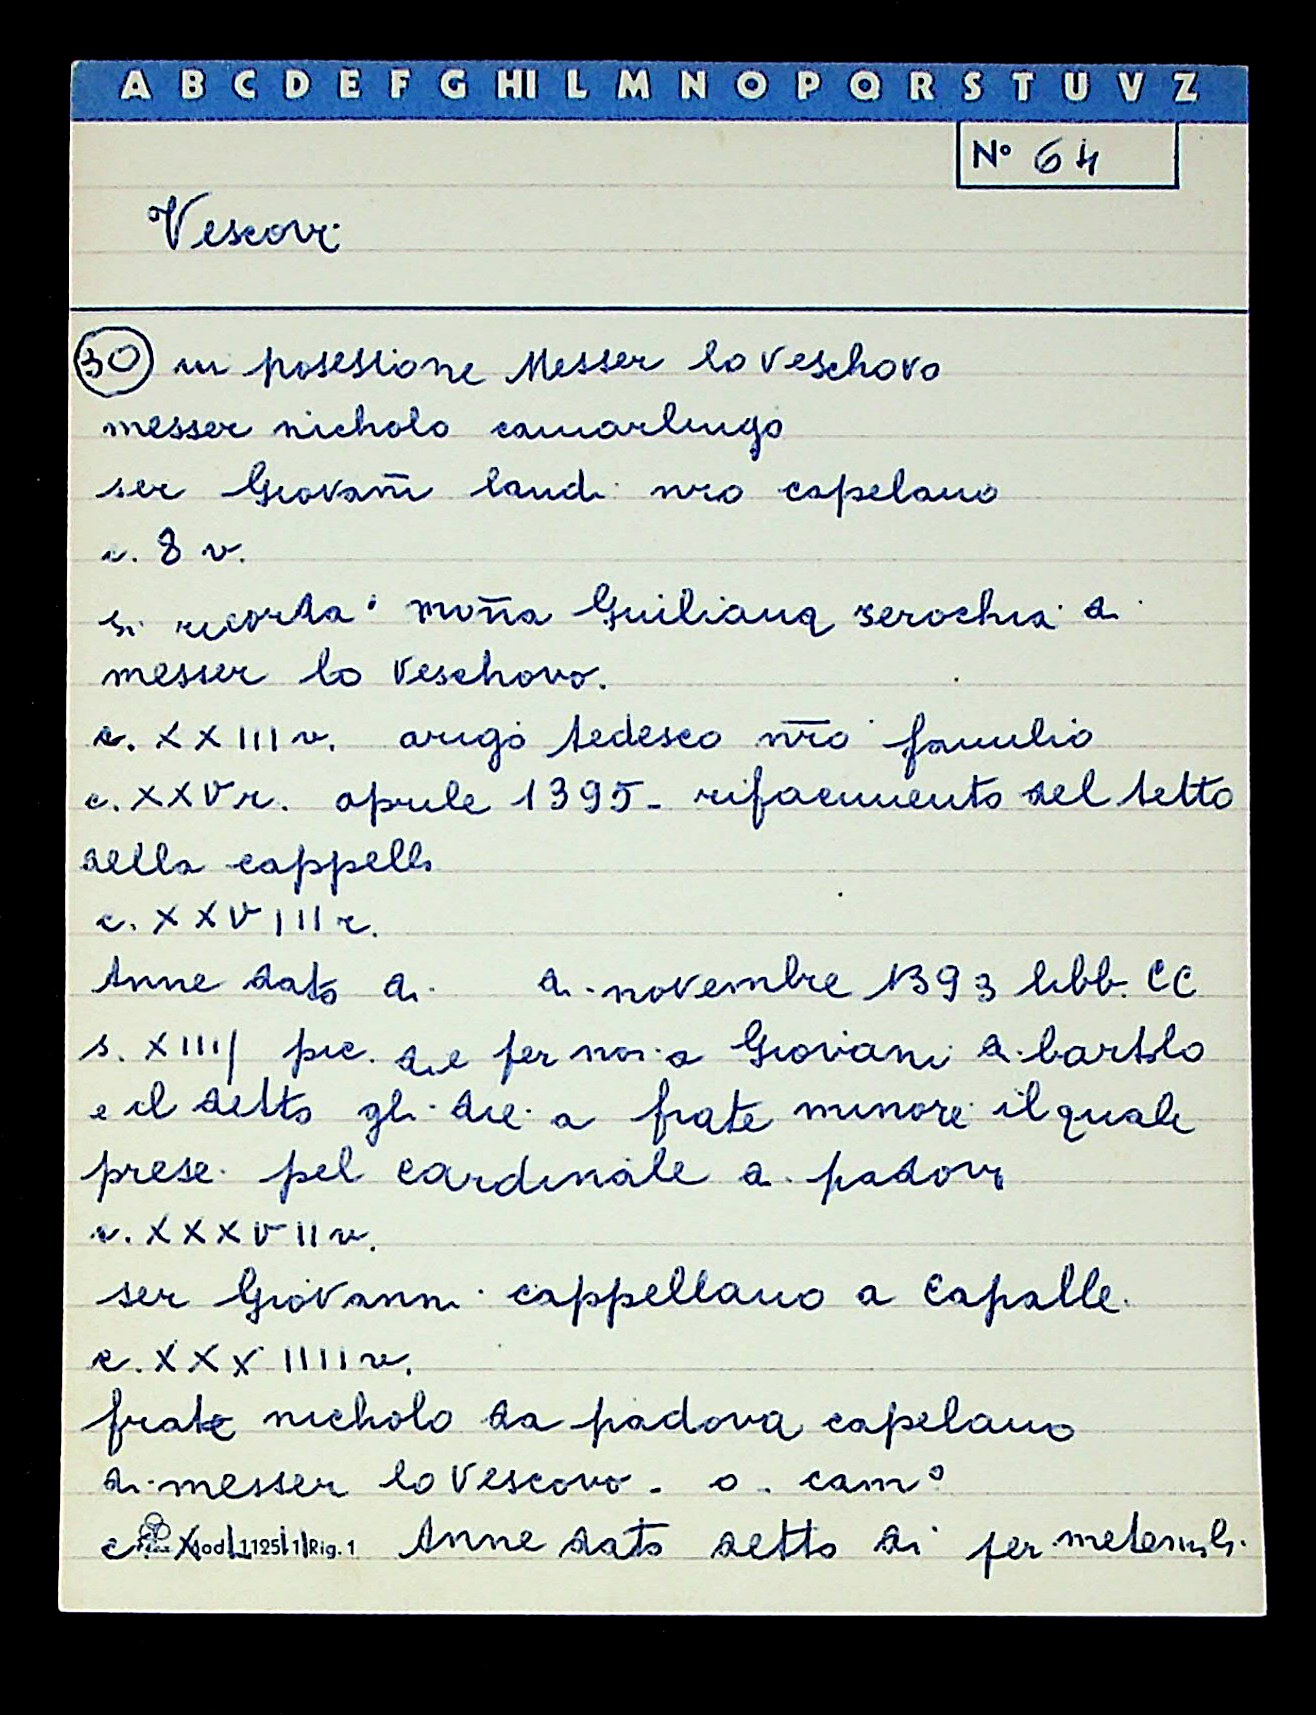 A B C D E F G HI L M N O P Q R S T U V Z
N° 64
Vescovi
30 in posessione Messer lo veschovo
messer nicholo camarlingo
ser Giovan̄i landi nro capelano
c. 8 v.
Si ricorda mon̄a Guiliana serochia di
messer lo veschovo.
c. XXIII v. arigo tedesco nr̄o famulio
c. XXV r. aprile 1395 - rifacimento del tetto
della cappella
c. XXVIII r.
Anne dato di di novembre 1393 libb. CC
s. XIIII pic. die per noi a Giovani di bartolo
e il detto gli die a frate minore il quale
prese pel cardinale di padova
c. XXXVII v.
ser Giovanni cappellano a Capalle.
c. XXXIIII v.
frate nicholo da padova capelano
di messer lo Vescovo - o. cam°
c. X Mod. 1125/1 Rig. 1 Anne dato detto di per